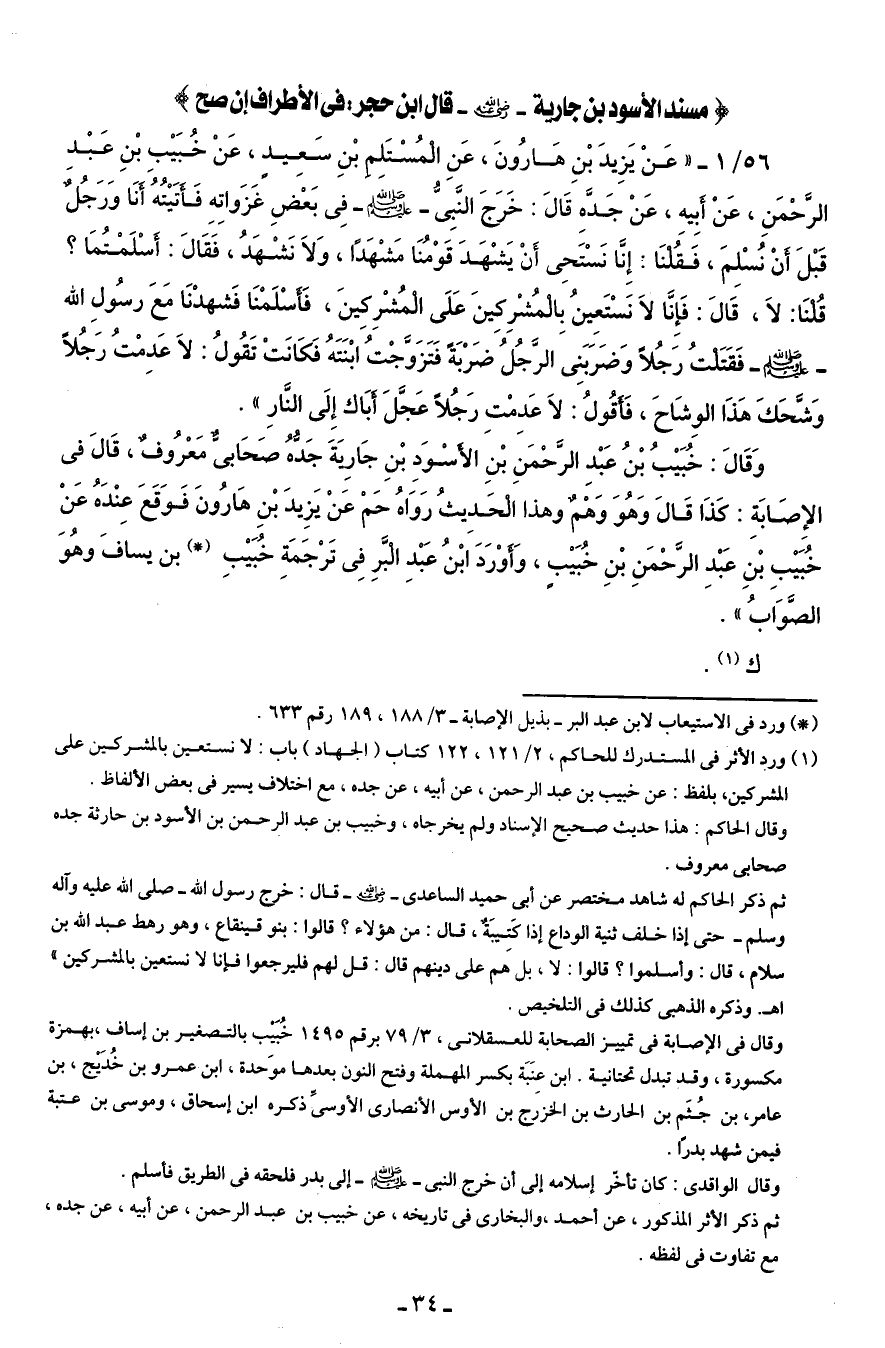 ﴿ مسند الأسود بن جارية - رضي الله عنه - قال ابن حجر : فى الأطراف إن صح ﴾
١/٥٦ - « عَـنْ يَزِيدَ بْنِ هَـارُونَ ، عَنِ الْمُسْـتَلِمِ بْنِ سَـعِيـدٍ ، عَنْ خُـبَيْبِ بْنِ عَـبْـدِ
الرَّحْمَنِ ، عَنْ أَبِيهِ ، عَنْ جَـدِّهِ قَالَ : خَرَجَ النَّبِىُّ - ﷺ - فِى بَعْضِ غَزَوَاتِهِ فَـأَتَيْتُهُ أَنَا وَرَجُلٌ
قَبْلَ أَنْ نُسْلِمَ ، فَـقُلْنَا : إِنَّا نَسْتَحِى أَنْ يَشْهَـدَ قَوْمُنَا مَشْهَدًا ، وَلاَ نَشْهَـدُ ، فَقَالَ : أَسْلَمْـتُمَا ؟
قُلْنَا: لاَ ، قَالَ : فَإِنَّا لاَ نَسْتَعِينُ بِالْمُشْرِكِينَ عَلَى الْمُشْرِكِينَ ، فَأَسْلَمْنَا فَشَهِدْنَا مَعَ رَسُولِ الله
- ﷺ - فَقَتَلْتُ رَجُلاً وَضَرَبَنِى الرَّجُلُ ضَرْبَةً فَتَزَوَّجْتُ ابْنَتَهُ فَكَانَتْ تَقُولُ : لاَ عَدِمْتُ رَجُلاً
وَشَّحَكَ هَذَا الوِشَاحَ ، فَأَقُولُ : لاَ عَدِمْتِ رَجُلاً عَجَّلَ أَبَاكِ إِلَى النَّارِ » .
وَقَالَ : خُبَيْبُ بْنُ عَبْدِ الرَّحْمَنِ بْنِ الأَسْـوَدِ بْنِ جَارِيَةَ جَدُّهُ صَحَابِىٌّ مَعْرُوفٌ ، قَالَ فِى
الإِصَـابَةِ : كَذَا قَـالَ وَهُوَ وَهْمٌ وهذا الْحَـدِيثُ رَوَاهُ حَمْ عَنْ يَزِيدَ بْنِ هَارُونَ فَـوَقَعَ عِنْدَهُ عَنْ
خُبَيْبِ بْنِ عَبْدِ الرَّحْمَنِ بْنِ خُبَيْبٍ ، وَأَوْرَدَ ابْنُ عَبْدِ الْبَرِّ فِى تَرْجَمَةِ خُبَيْبِ (*) بن يساف وهُوَ
الصَّوَابُ » .
ك (١) .
(*) ورد فى الاستيعاب لابن عبد البر - بذيل الإصابة - ٣/ ١٨٨ ، ١٨٩ رقم ٦٣٣ .
(١) ورد الأثر فى المستدرك للحاكم ، ٢/ ١٢١ ، ١٢٢ كتاب ( الجهاد ) باب : لا نستعين بالمشركين على
المشركين، بلفظ : عن خبيب بن عبد الرحمن ، عن أبيه ، عن جده ، مع اختلاف يسير فى بعض الألفاظ .
وقال الحاكم : هذا حديث صحيح الإسناد ولم يخرجاه ، وخبيب بن عبد الرحمن بن الأسود بن حارثة جده
صحابى معروف .
ثم ذكر الحاكم له شاهد مختصر عن أبى حميد الساعدى - رضي الله عنه - قال : خرج رسول الله - صلى الله عليه وآله
وسلم - حتى إذا خلف ثنية الوداع إذا كَتِيبَةٌ ، قال : من هؤلاء ؟ قالوا : بنو قينقاع ، وهو رهط عبد الله بن
سلام ، قال : وأسلموا ؟ قالوا : لا ، بل هم على دينهم قال : قل لهم فليرجعوا فإنا لا نستعين بالمشركين »
اهـ. وذكره الذهبى كذلك فى التلخيص .
وقال فى الإصابة فى تمييز الصحابة للعسقلانى ، ٣/ ٧٩ برقم ١٤٩٥ خُبَيْب بالتصغير بن إساف ،بهمزة
مكسورة ، وقد تبدل تحتانية . ابن عِنَبَة بكسر المهملة وفتح النون بعدها موَحدة ، ابن عمرو بن خُدَيْج ، بن
عامر، بن جُـثَم بن الحارث بن الخزرج بن الأوس الأنصارى الأوسىِّ ذكره ابن إسحاق ، وموسى بن عتبة
فيمن شهد بدرًا .
وقال الواقدى : كان تأخّر إسلامه إلى أن خرج النبى - ﷺ - إلى بدر فلحقه فى الطريق فأسلم .
ثم ذكر الأثر المذكور ، عن أحمد ،والبخارى فى تاريخه ، عن خبيب بن عبد الرحمن ، عن أبيه ، عن جده ،
مع تفاوت فى لفظه .
- ٣٤ -